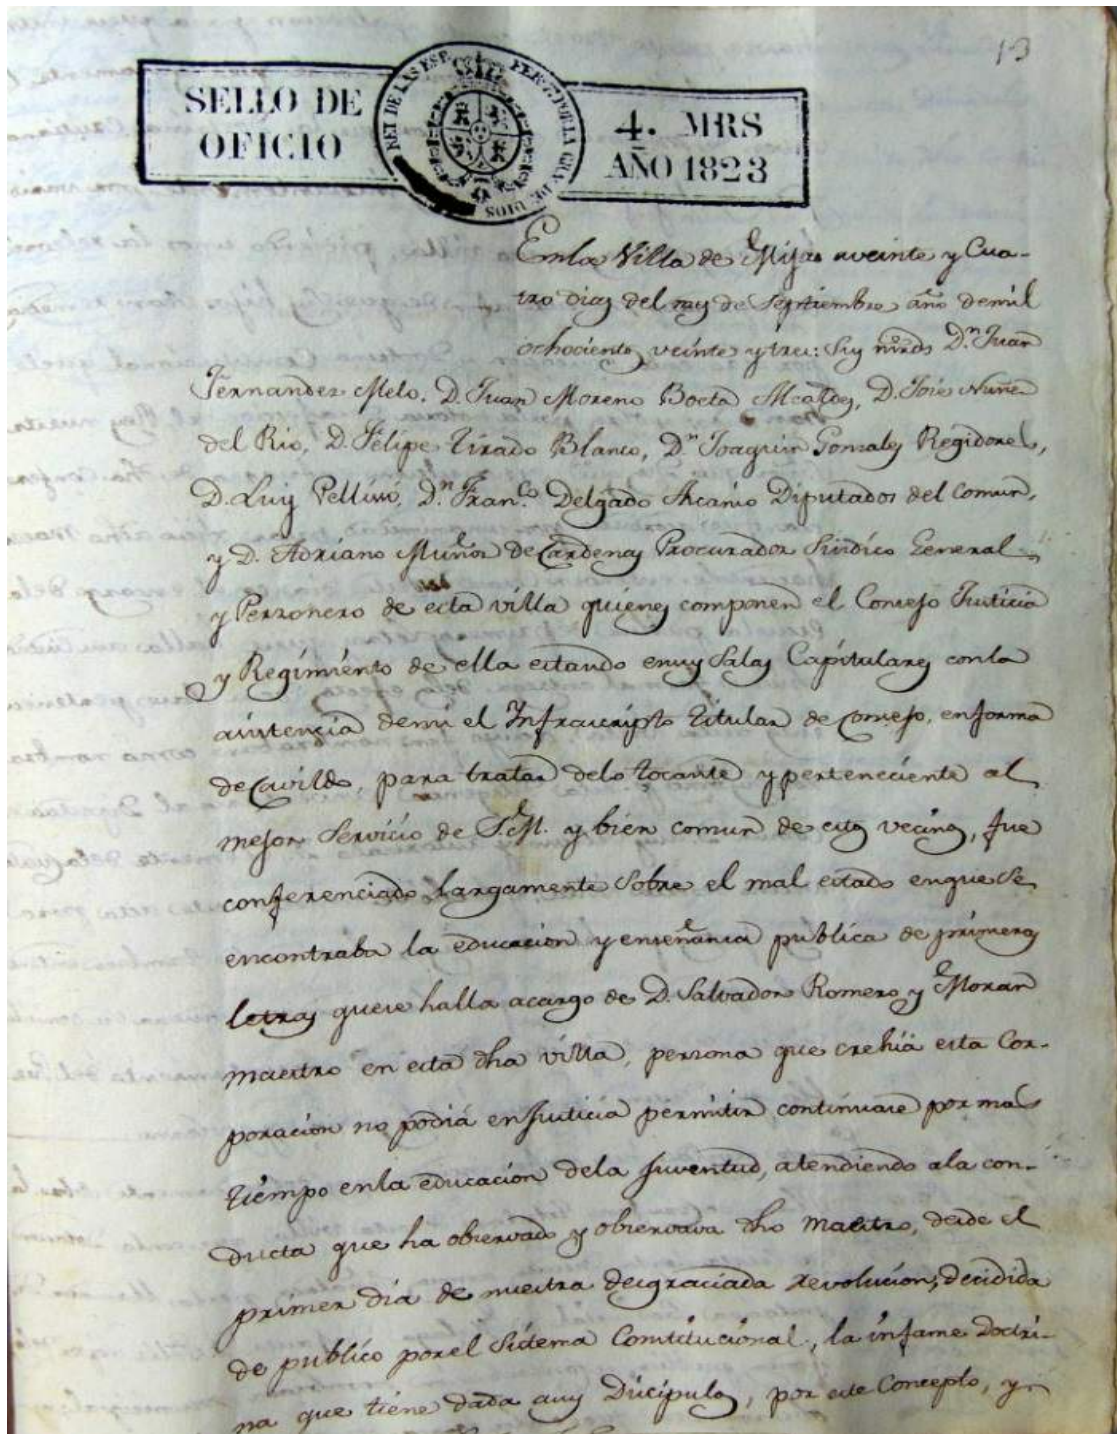 13
SELLO DE
OFICIO
REI DE LAS ESP. FERN. 7. POR LA GRA. DE DIOS
4. MRS
AÑO 1823
En la Villa de Mijas a veinte y Cua-
tro dias del mes de Septiembre año de mil
ochocientos veinte y tres: Sus mrds Dn. Juan
Fernandez Melo, D. Juan Moreno Boeta Alcaldes, D. Jose Nuñez
del Rio, D. Felipe Tirado Blanco, Dn Joaquin Gonzales Regidores,
D. Luis Pellisso, Dn. Franco. Delgado Ascanio Diputados del Comun,
y D. Adriano Muñoz de Cardenas Procurador Sindico General
y Perzonero de esta villa quienes componen el Consejo Justicia
y Regimiento de ella estando en sus Salas Capitulares con la
asistencia de mi el Infrascripto Titular de Consejo, en forma
de Cavildo, para tratar de lo tocante y perteneciente al
mejor Servicio de S.M. y bien comun de estos vecinos, fue
conferenciado largamente Sobre el mal estado en que Se
encontraba la educacion y enseñanza publica de primeras
letras que se halla a cargo de D. Salvador Romero y Moran
maestro en esta dha villa, persona que crehia esta Cor-
poracion no podia en Justicia permitir continuase por mas
tiempo en la educacion de la Juventud, atendiendo a la con-
ducta que ha observado y observava dho maestro, desde el
primer dia de nuestra desgraciada revolucion, decidida
de publico por el Sistema Constitucional, la infame Doctri-
na que tiene dada a sus Dicipulos, por este Concepto, y